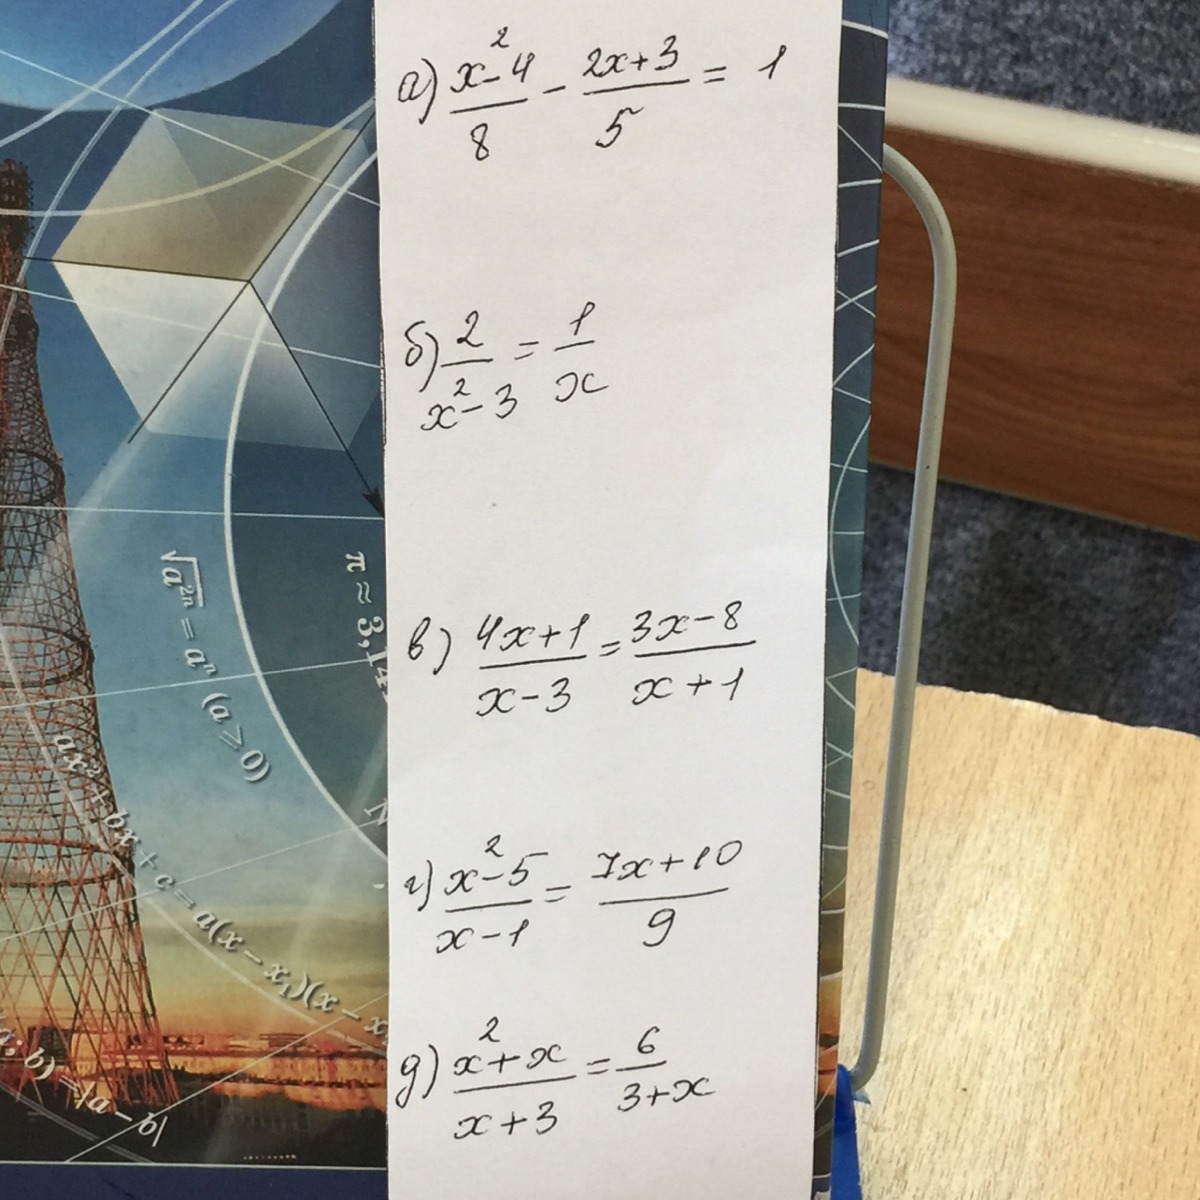 а) (x²-4)/8 - (2x+3)/5 = 1
б) 2/(x²-3) = 1/x
в) (4x+1)/(x-3) = (3x-8)/(x+1)
г) (x²-5)/(x-1) = (7x+10)/9
д) (x²+x)/(x+3) = 6/(3+x)
√a²ⁿ = aⁿ (a ⩾ 0)
π ≈ 3,14
ax² + bx + c = a(x − x₁)(x − x
; b) = |a − b|